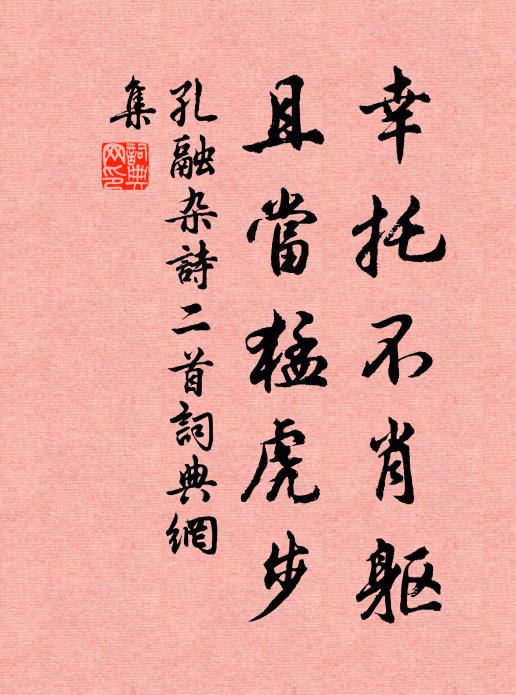 幸托不肖躯
且當猛虎步
孔融杂詩二首詞典網
集
詞典網印